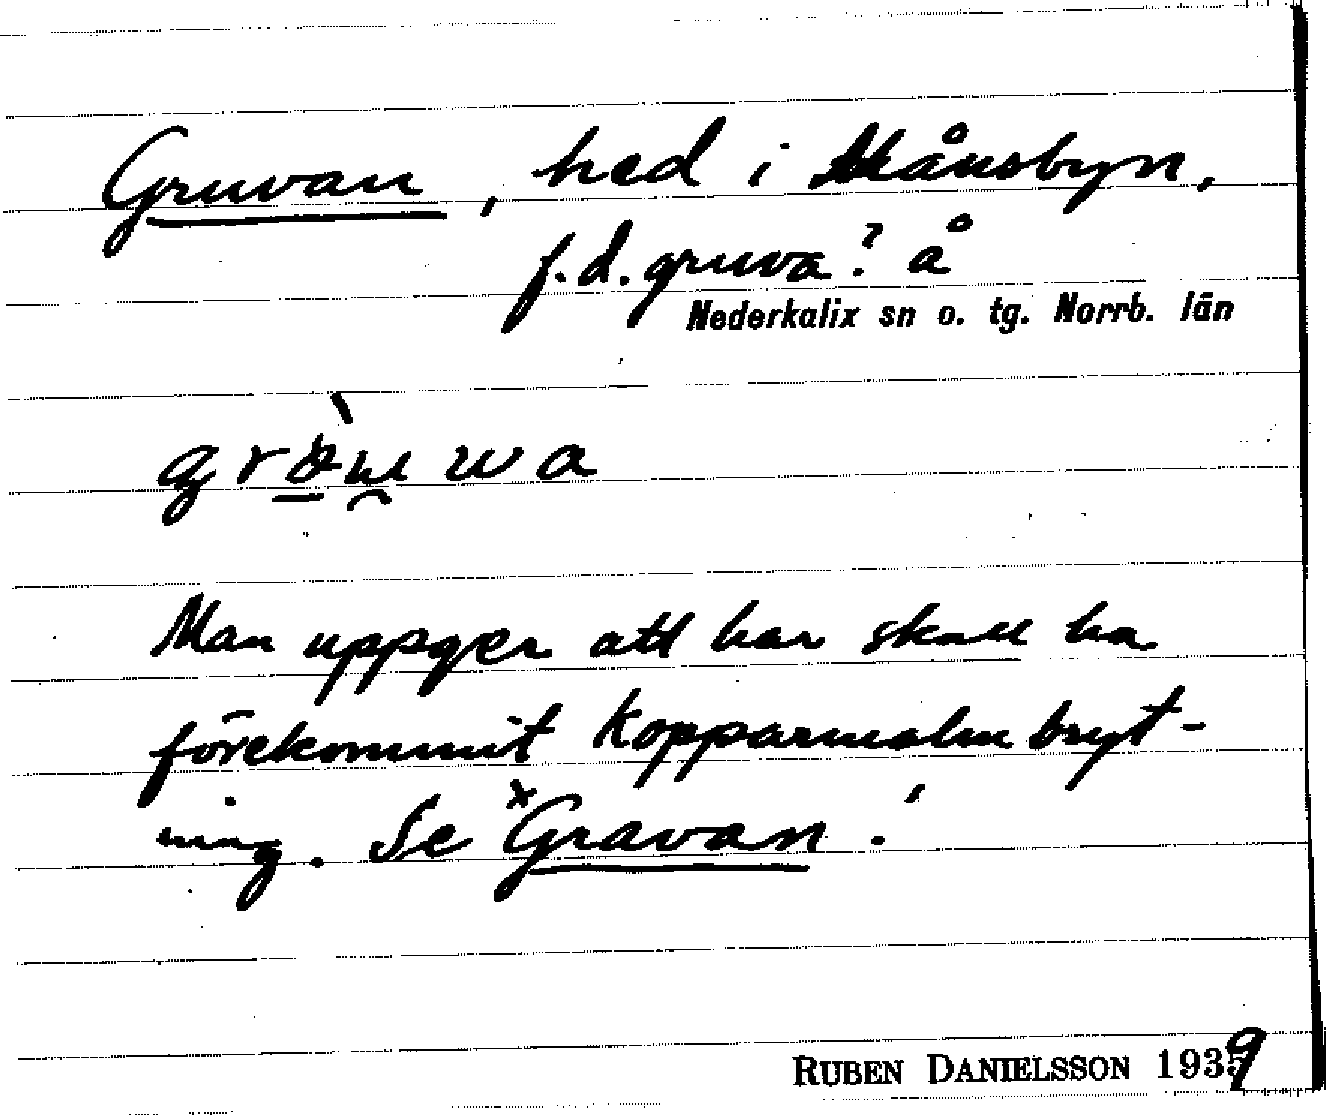 Gruvan, hed i Månsbyn,
f.d. gruva? å
Nederkalix sn o. tg. Norrb. län
Man uppger att här skall ha
förekommit kopparmalmbryt-
ning. Se Gravan.
RUBEN DANIELSSON 1939